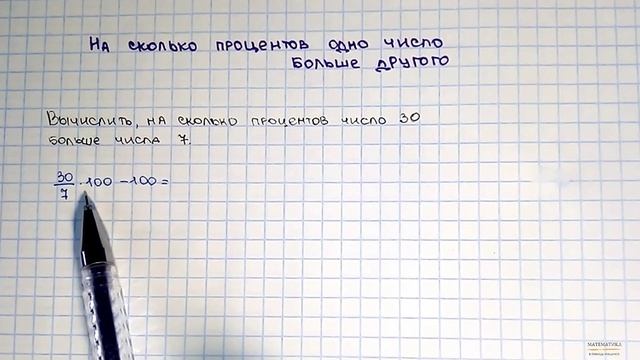 На сколько процентов одно число
больше другого
Вычислить, на сколько процентов число 30
больше числа 7.
30/7 · 100 - 100 =
МАТЕМАТИКА